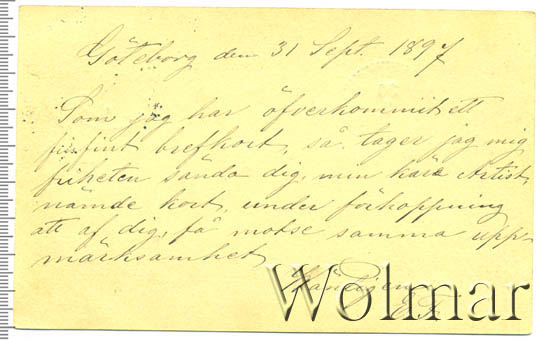 Göteborg den 31 Sept. 1897
Som jag har öfverkommit ett
finfint brefkort, så tager jag mig
friheten sända dig, min kära Artist,
nämde kort, under förhoppning
att af dig, få motse samma upp-
märksamhet
Wolmar